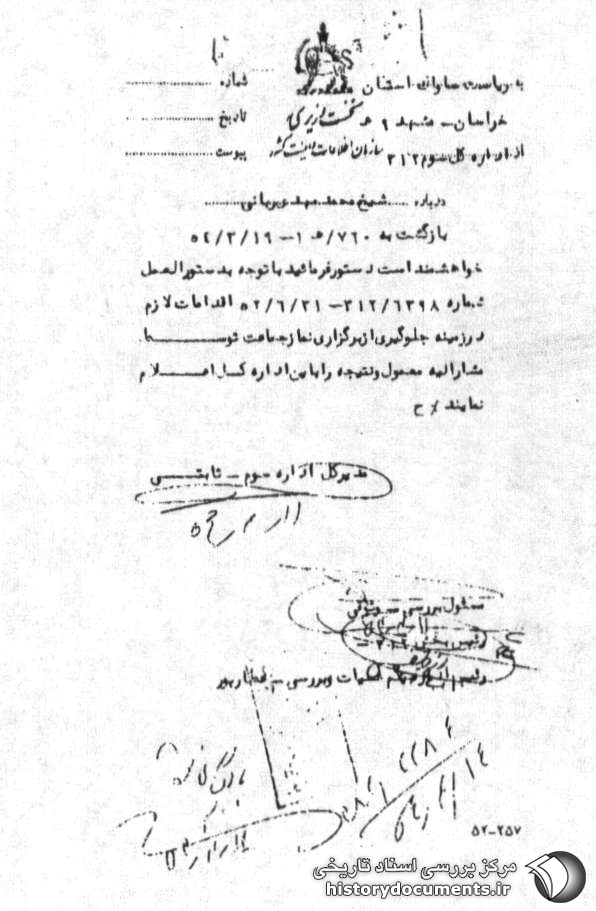 به ریاست ساواک استان
شماره
خراسان - مشهد ۹ هـ
نخست وزیری
تاریخ
از اداره کل سوم ۳۱۲
سازمان اطلاعات و امنیت کشور
پیوست
درباره ..... شیخ محمد مهدی ربانی
بازگشت به ۷۶۰/هـ ۱ - ۵۴/۳/۱۹
خواهشمند است دستور فرمائید با توجه به دستورالعمل
شماره ۳۱۲/۶۳۹۸ - ۵۲/۶/۳۱ اقدامات لازم
در زمینه جلوگیری از برگزاری نماز جماعت توســـط
مشارالیه معمول و نتیجه را باین اداره کـل اعـــلام
نمایند / ح
مدیر کل اداره سوم - ثابتـــی
مسئول بررسی -
رئیس بخش ۳۱۲ -
عملیات و بررسی -
بایگانی شود
۵۲-۲۵۷
مرکز بررسی اسناد تاریخی
historydocuments.ir